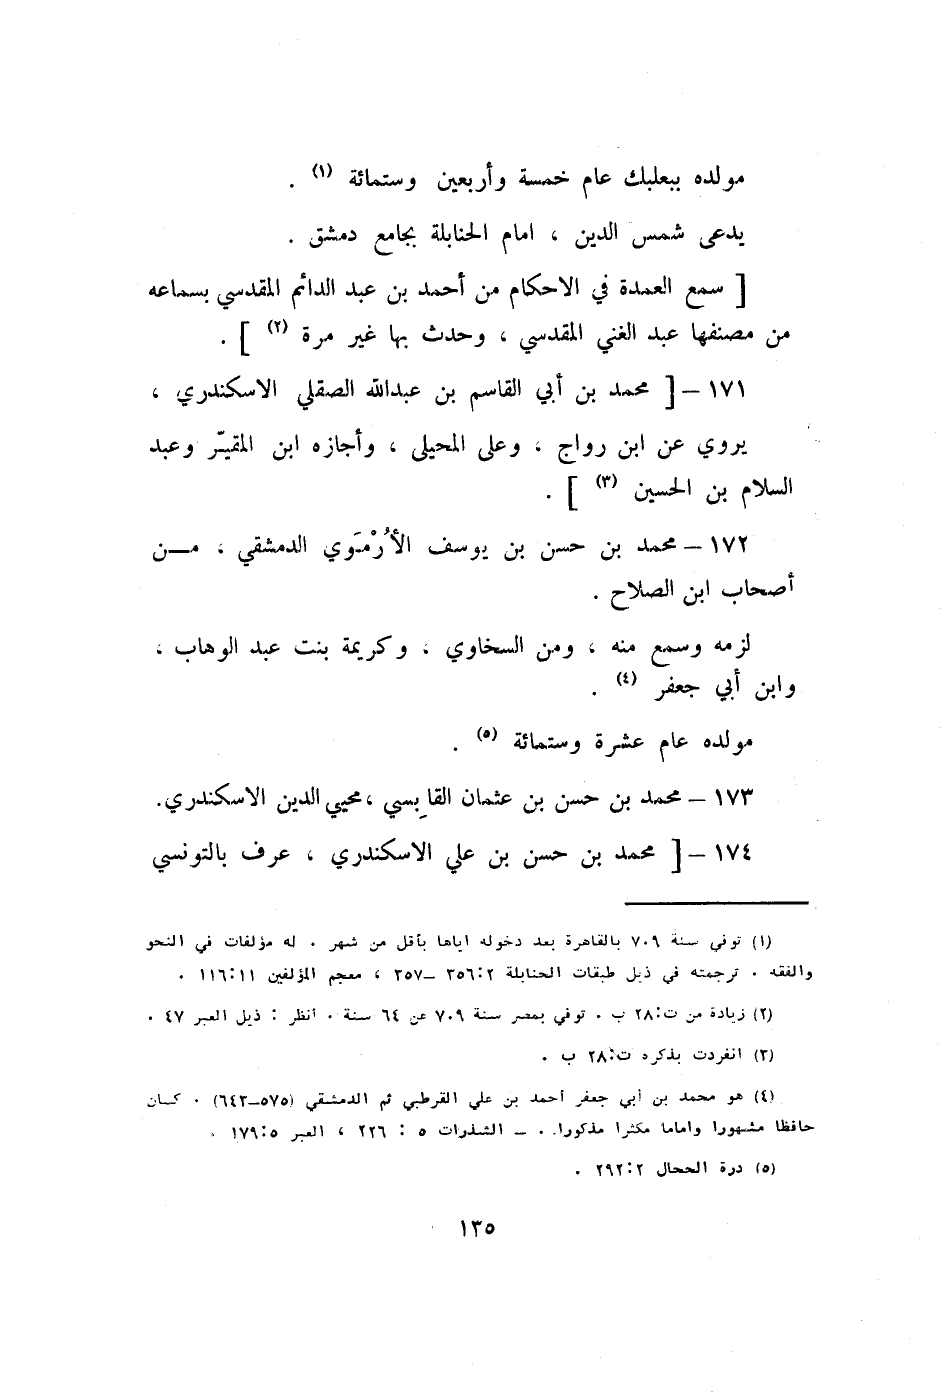 مولده ببعلبك عام خمسة وأربعين وستمائة (١) .
يدعى شمس الدين ، امام الحنابلة بجامع دمشق .
[ سمع العمدة في الاحكام من أحمد بن عبد الدائم المقدسي بسماعه
من مصنفها عبد الغني المقدسي ، وحدث بها غير مرة (٢) ] .
١٧١ – [ محمد بن أبي القاسم بن عبدالله الصقلي الاسكندري ،
يروي عن ابن رواج ، وعلى المحيلى ، وأجازه ابن المقيّر وعبد
السلام بن الحسين (٣) ] .
١٧٢ – محمد بن حسن بن يوسف الأُرْمَوي الدمشقي ، مــن
أصحاب ابن الصلاح .
لزمه وسمع منه ، ومن السخاوي ، وكريمة بنت عبد الوهاب ،
وابن أبي جعفر (٤) .
مولده عام عشرة وستمائة (٥) .
١٧٣ – محمد بن حسن بن عثمان القابِسي ، محيي الدين الاسكندري.
١٧٤ – [ محمد بن حسن بن علي الاسكندري ، عرف بالتونسي
(١) توفي سنة ٧٠٩ بالقاهرة بعد دخوله اياها بأقل من شهر . له مؤلفات في النحو
والفقه . ترجمته في ذيل طبقات الحنابلة ٢:٣٥٦ –٣٥٧ ، معجم المؤلفين ١١:١١٦ .
(٢) زيادة من ت:٢٨ ب . توفي بمصر سنة ٧٠٩ عن ٦٤ سنة . انظر : ذيل العبر ٤٧ .
(٣) انفردت بذكره ت:٢٨ ب .
(٤) هو محمد بن أبي جعفر أحمد بن علي القرطبي ثم الدمشقي (٥٧٥–٦٤٣) . كــان
حافظا مشهورا واماما مكثرا مذكورا. . – الشذرات ٥ : ٢٢٦ ، العبر ٥:١٧٩ .
(٥) درة الحجال ٢:٢٩٢ .
١٣٥